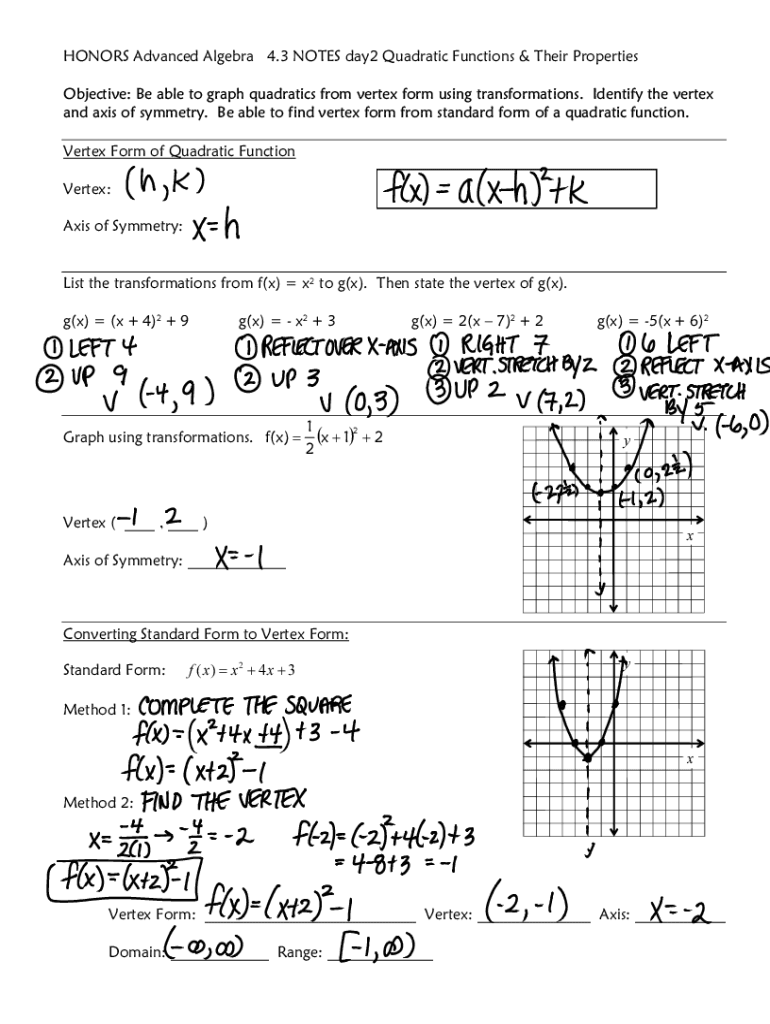 HONORS Advanced Algebra 4.3 NOTES day2 Quadratic Functions & Their Properties
Objective: Be able to graph quadratics from vertex form using transformations. Identify the vertex
and axis of symmetry. Be able to find vertex form from standard form of a quadratic function.
Vertex Form of Quadratic Function
Vertex: (h,k)
f(x) = a(x-h)²+k
Axis of Symmetry: x=h
List the transformations from f(x) = x² to g(x). Then state the vertex of g(x).
g(x) = (x + 4)² + 9 g(x) = - x² + 3 g(x) = 2(x – 7)² + 2 g(x) = -5(x + 6)²
① LEFT 4 ① REFLECT OVER X-AXIS ① RIGHT 7 ① 6 LEFT
② UP 9 ② UP 3 ② VERT. STRETCH BY 2 ② REFLECT X-AXIS
③ UP 2 ③ VERT. STRETCH
BY 5
V (-4,9) V (0,3) V (7,2) V. (-6,0)
Graph using transformations. f(x) = 1/2(x + 1)² + 2
y
(0,2½)
(-2,2½) (-1,2)
x
Vertex (-1 , 2 )
Axis of Symmetry: x=-1
Converting Standard Form to Vertex Form:
Standard Form: f(x) = x² + 4x + 3
Method 1: COMPLETE THE SQUARE
f(x)=(x²+4x+4)+3-4
f(x)=(x+2)²-1
y
x
Method 2: FIND THE VERTEX
x= -4/2(1) → -4/2 = -2 f(-2)=(-2)²+4(-2)+3
= 4-8+3 = -1
f(x)=(x+2)²-1
y
Vertex Form: f(x)=(x+2)²-1 Vertex: (-2,-1) Axis: x=-2
Domain: (-∞,∞) Range: [-1,∞)